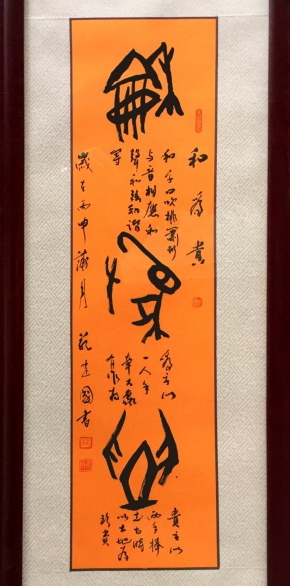 和為貴
和字口吹排簫形
与音相應和
聲和弦和諧
等
為字以
一人手
牽大象
有作為
貴字以
两手捧
土
以土地為
珍貴
歲在丙申月
范建國書